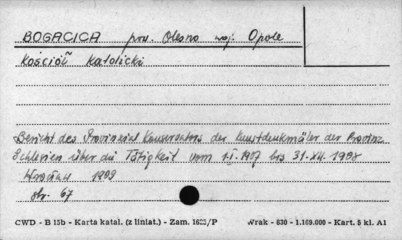 BOGACICA pow. Olesno woj. Opole
Kościół katolicki
Bericht des Provinzial Konservators der Kunstdenkmäler der Provinz
Schlesien über die Tätigkeit vom 1.I.1907 bis 31.XII.1908
Wrocław 1909
str. 67
CWD - B 15b - Karta katal. (z liniat.) - Zam. /P Wrak - 630 - 1.169.000 - Kart. 5 kl. A1